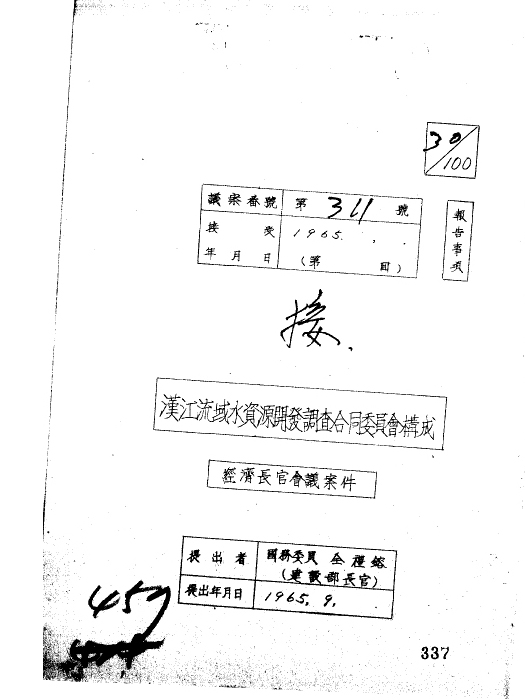 30/100
議案番號 第 311 號
接受 1965. . .
年月日 (第 回)
報告事項
接.
漢江流域水資源開發調査合同委員會構成
經濟長官會議案件
提出者 國務委員
(建設部長官)
提出年月日 1965. 9.
459
337